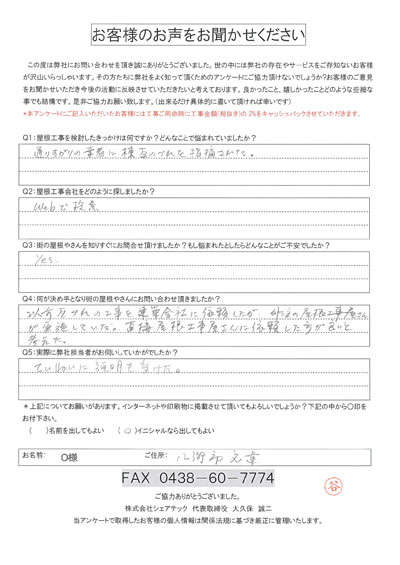 お客様のお声をお聞かせください
この度は弊社にお問い合わせを頂き誠にありがとうございました。世の中には弊社の存在やサービスをご存知ないお客様
が沢山いらっしゃいます。その方たちに弊社をよく知って頂くためのアンケートにご協力頂けないでしょうか?お客様のご意見
をお聞かせいただき今後の活動に反映させていただきたいと考えております。良かったこと、嬉しかったことどのような些細な
事でも結構です。是非ご協力お願い致します。(出来るだけ具体的に書いて頂ければ幸いです)
*本アンケートにご記入いただいたお客様には工事ご用命時に工事金額(税抜き)の 2%をキャッシュバックさせていただきます。
Q1:屋根工事を検討したきっかけは何ですか?どんなことで悩まれていましたか?
通りすがりの業者に棟瓦のずれを指摘されて。
Q2:屋根工事会社をどのように探しましたか?
Webで検索
Q3:街の屋根やさんを知りすぐにお問合せ頂けましたか?もし悩まれたとしたらどんなことがご不安でしたか?
Yes.
Q4:何が決め手となり街の屋根やさんにお問い合わせ頂きましたか?
以前瓦ずれの工事を建築会社に依頼したが、の屋根工事屋さん
が実施していた。直接屋根工事屋さんに依頼した方が良いと
考えた。
Q5:実際に弊社担当者がお伺いしていかがでしたか?
ていねいに説明を受けた。
*上記についてお願いがあります。インターネットや印刷物に掲載させて頂いてもよろしいでしょうか?下記の中から〇印を
お付下さい。
( )名前を出してもよい (○)イニシャルなら出してもよい
お名前: O様 ご住所: 八街市文違
FAX 0438-60-7774
ご協力ありがとうございました。
株式会社シェアテック 代表取締役 大久保 誠二
当アンケートで取得したお客様の個人情報は関係法規に基づき厳正に管理いたします。
谷